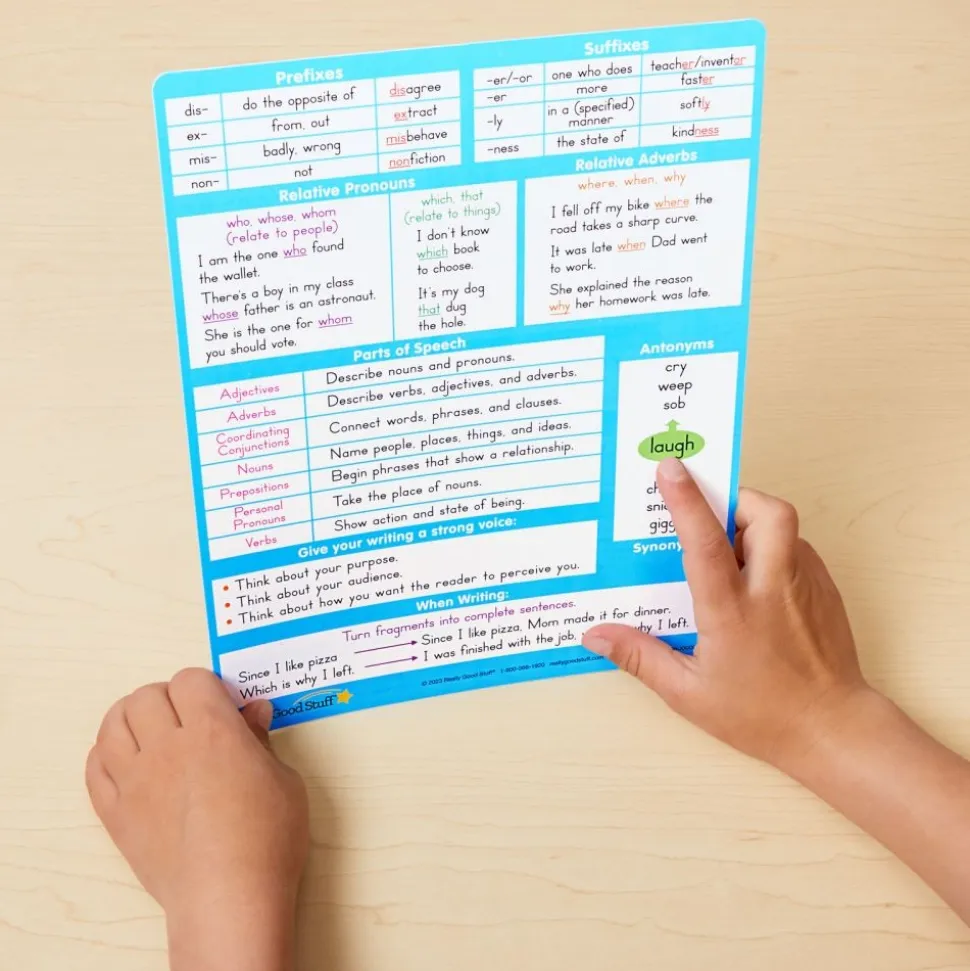 Prefixes
dis- do the opposite of disagree
ex- from, out extract
mis- badly, wrong misbehave
non- not nonfiction
Suffixes
-er/-or one who does teacher/inventor
-er more faster
-ly in a (specified) manner softly
-ness the state of kindness
Relative Pronouns
who, whose, whom
(relate to people)
I am the one who found
the wallet.
There's a boy in my class
whose father is an astronaut.
She is the one for whom
you should vote.
which, that
(relate to things)
I don't know
which book
to choose.
It's my dog
that dug
the hole.
Relative Adverbs
where, when, why
I fell off my bike where the
road takes a sharp curve.
It was late when Dad went
to work.
She explained the reason
why her homework was late.
Parts of Speech
Adjectives Describe nouns and pronouns.
Adverbs Describe verbs, adjectives, and adverbs.
Coordinating Conjunctions Connect words, phrases, and clauses.
Nouns Name people, places, things, and ideas.
Prepositions Begin phrases that show a relationship.
Personal Pronouns Take the place of nouns.
Verbs Show action and state of being.
Antonyms
cry
weep
sob
laugh
Give your writing a strong voice:
• Think about your purpose.
• Think about your audience.
• Think about how you want the reader to perceive you.
When Writing:
Turn fragments into complete sentences.
Since I like pizza → Since I like pizza, Mom made it for dinner.
Which is why I left. → I was finished with the job, why I left.
Good Stuff
© 2023 Really Good Stuff® 1-800-366-1920 reallygoodstuff.com